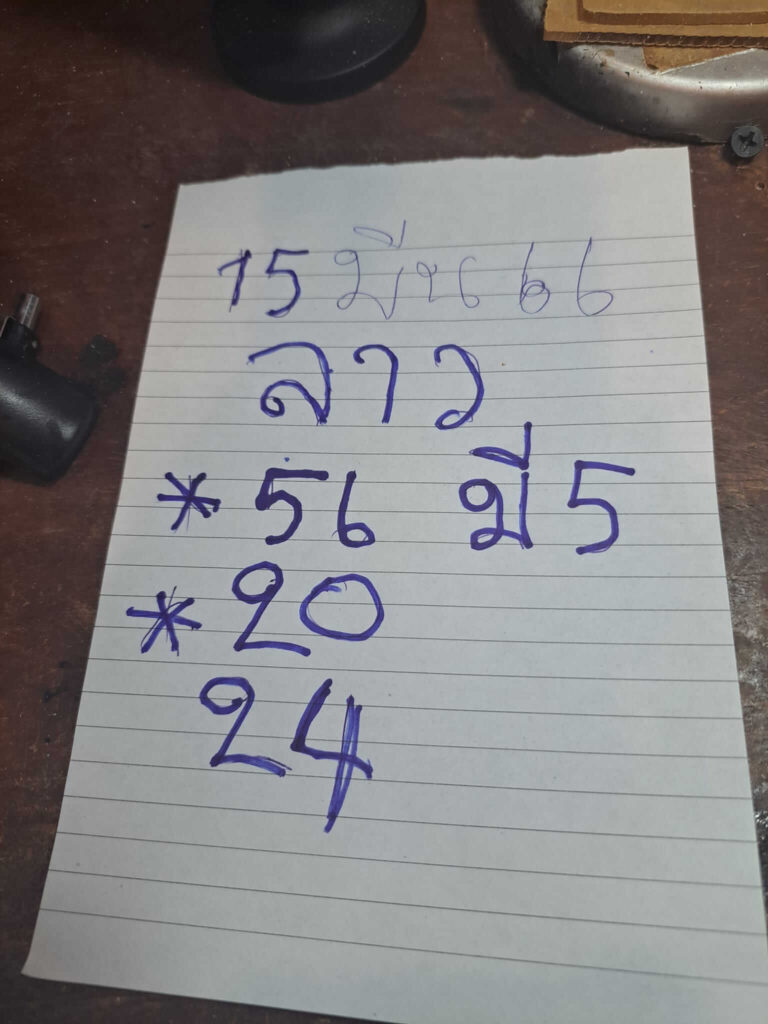 15 มีน 66
ลาว
* 56 มี 5
* 20
24